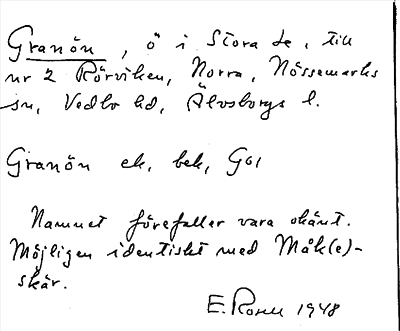 Granön, ö i Stora Le, till
nr 2 Rörviken, Norra, Nössemarks
sn, Vedbo hd, Älvsborgs l.
Granön ek. bek, G61
Namnet förefaller vara okänt.
Möjligen identiskt med Måk(e)-
skär.
E. 1948